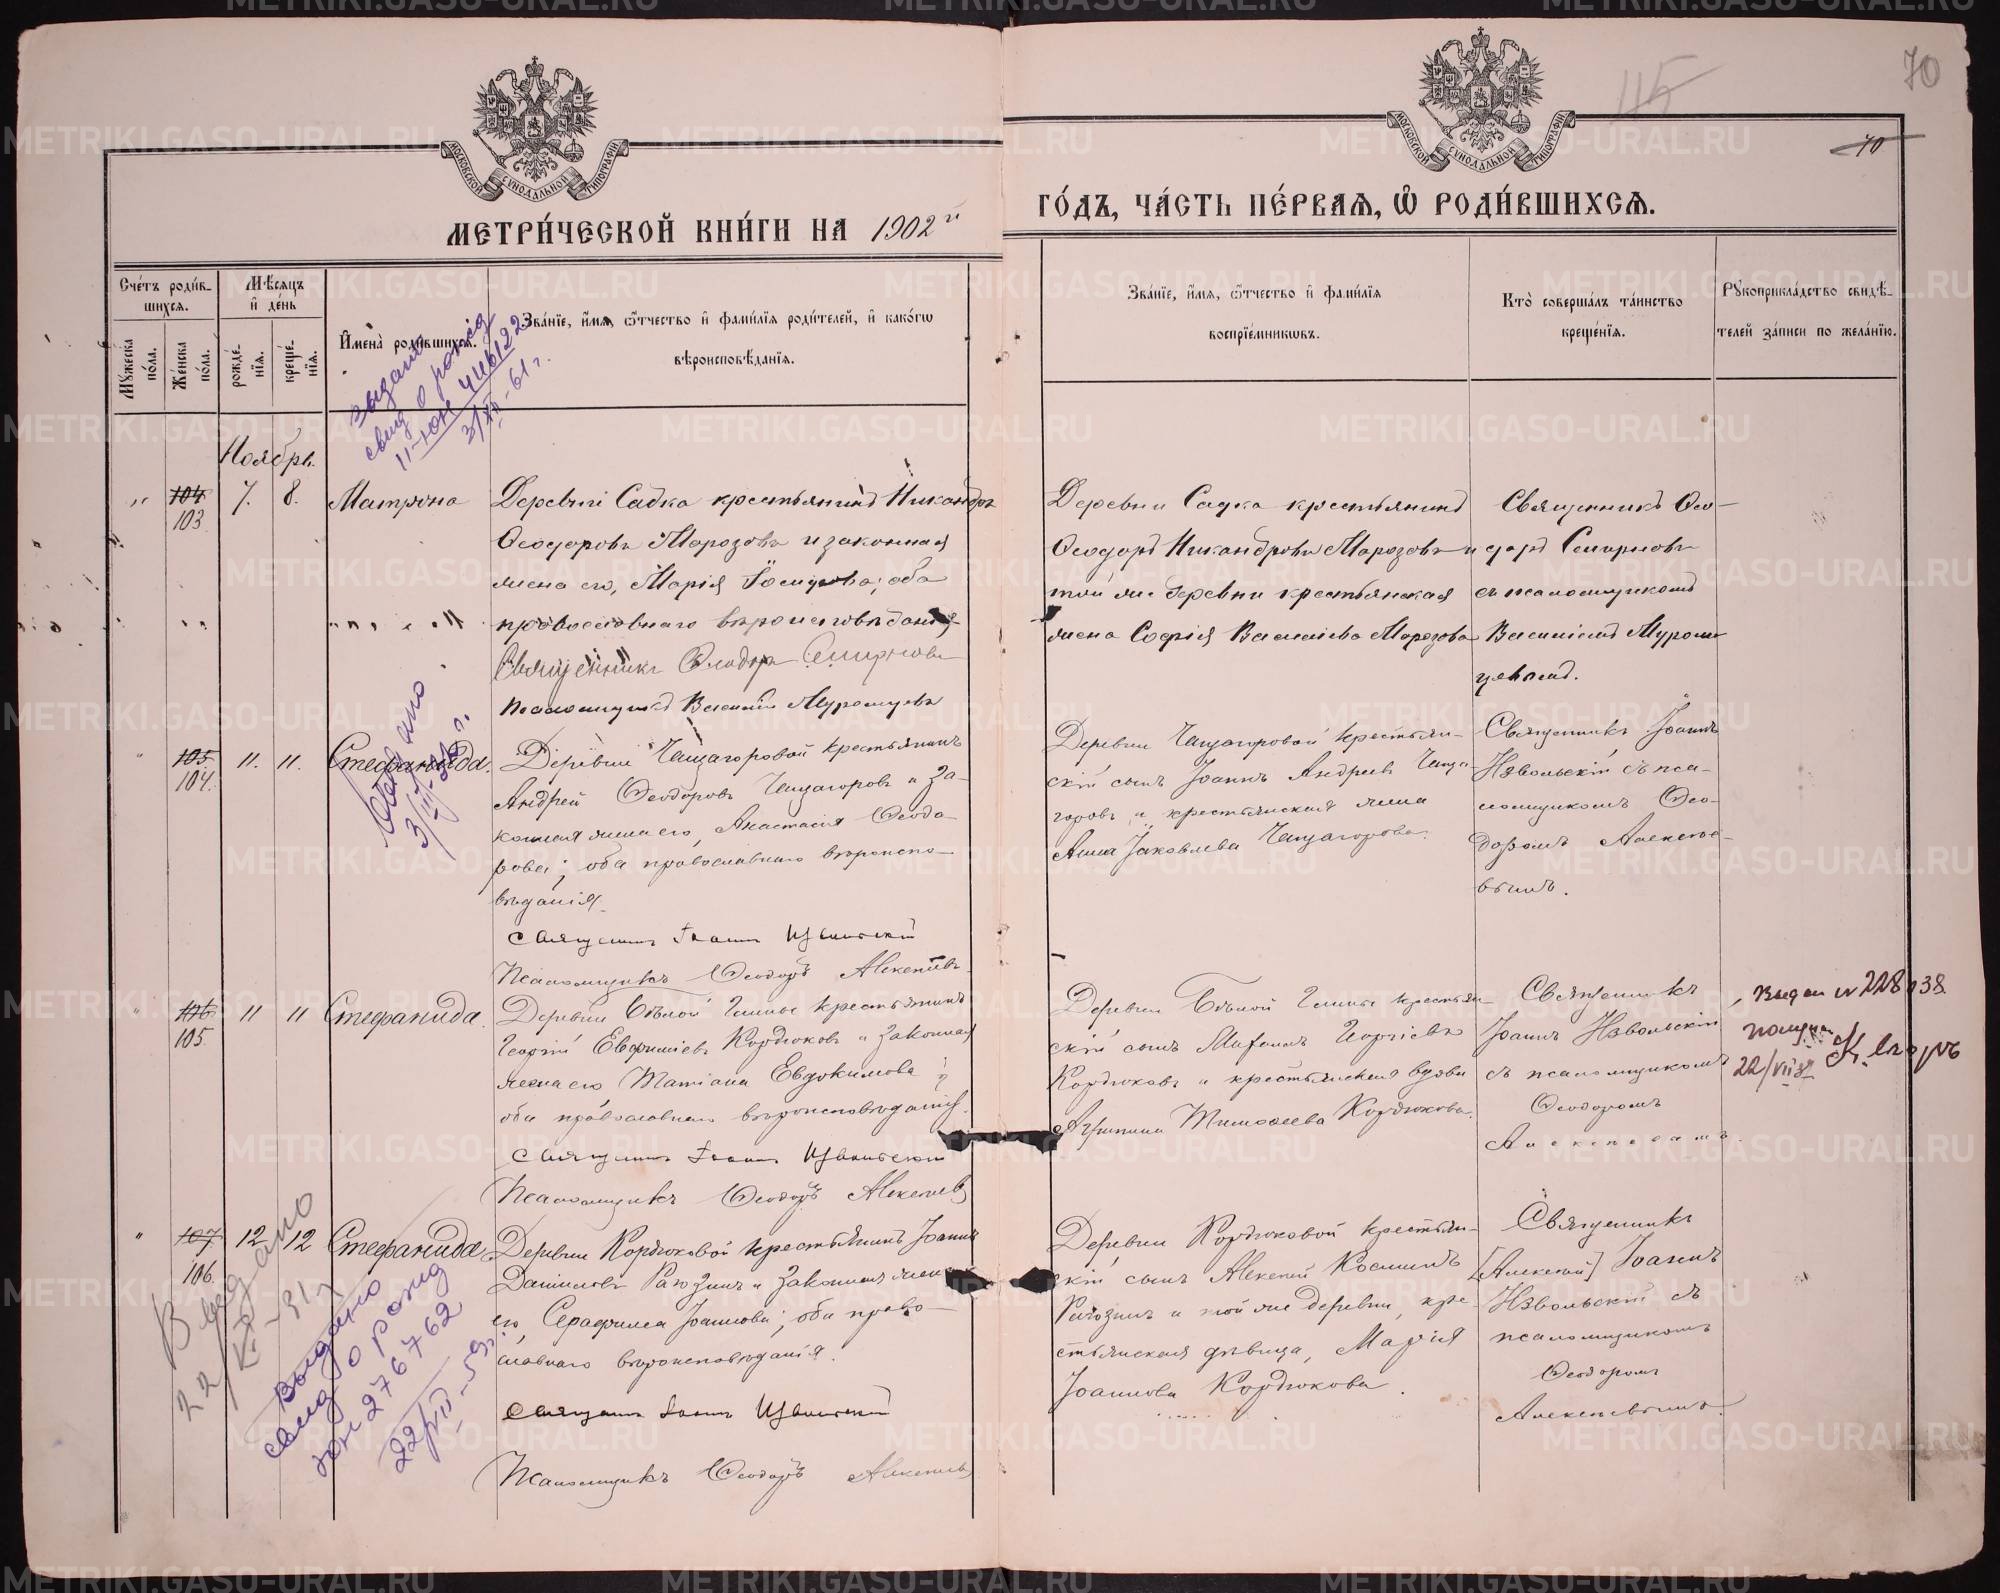 115
70
70
МОСКОВСКОЙ СѴНОДАЛЬНОЙ ТИПОГРАФІИ
МОСКОВСКОЙ СѴНОДАЛЬНОЙ ТИПОГРАФІИ
МЕТРИ́ЧЕСКОЙ КНИ́ГИ НА 1902й
ГО́ДЪ, ЧА́СТЬ ПЕ́РВАѦ, Ѡ҆ РОДИ́ВШИХСѦ.
Сче́тъ роди́в-
шихсѧ.
Мꙋ́жеска по́ла.
Же́нска по́ла.
Мѣ́сѧцъ
и҆ де́нь
рожде́-
нїѧ.
креще́-
нїѧ.
И҆мена̀ роди́вшихсѧ.
Зва́нїе, и҆́мѧ, ѻ҆́тчество и҆ фами́лїѧ роди́телей, и҆ како́гѡ
вѣроисповѣ́данїѧ.
Зва́нїе, и҆́мѧ, ѻ҆́тчество и҆ фами́лїѧ
воспрїе́мникѡвъ.
Кто̀ соверша́лъ та́инство
креще́нїѧ.
Рꙋкоприкла́дство свидѣ́-
телей за́писи по жела́нїю.
выдано
свид о рожд
II-ЮН 446122
3/XII-61 г.
Ноябрь.
" 104 103 7. 8. Матрона
Деревни Садка крестьянинъ Никандръ
Ѳеодоровъ Морозовъ и законная
жена его, Марія Іосифова; оба
православнаго вѣроисповѣданія
Священникъ Ѳеодоръ Смирновъ
Псаломщикъ Василій Муромцевъ
Деревни Садка крестьянинъ
Ѳеодоръ Никандровъ Морозовъ и
той же деревни крестьянская
жена Софія Василіева Морозова
Священникъ Ѳео-
доръ Смирновъ
съ псаломщикомъ
Василіемъ Муром-
цевымъ.
" 105 104. 11. 11. Стефанида.
Деревни Чащагоровой крестьянинъ
Андрей Ѳеодоровъ Чащагоровъ и за-
конная жена его, Анастасія Ѳеодо-
рова; оба православнаго вѣроиспо-
вѣданія.
Священникъ Іоаннъ
Псаломщикъ Ѳеодоръ Алексѣевъ
Деревни Чащагоровой крестьян-
скій сынъ Іоаннъ Андреевъ Чаща-
горовъ и крестьянская жена
Анна Іаковлева Чащагорова.
Священникъ Іоаннъ
съ пса-
ломщикомъ Ѳео-
доромъ Алексѣе-
вымъ.
" 106 105. 11 11 Стефанида.
Деревни Бѣлой Глины крестьянинъ
Георгій Евфиміевъ Кордюковъ и законная
жена его Татіана Евдокимова;
оба православнаго вѣроисповѣданія.
Священникъ Іоаннъ
Псаломщикъ Ѳеодоръ Алексѣевъ
Деревни Бѣлой Глины крестьян-
скій сынъ Георгіевъ
Кордюковъ и крестьянская вдова
Агрипина Тимоѳеева Кордюкова.
Священникъ
Іоаннъ
съ псаломщикомъ
Ѳеодоромъ
Алексѣевымъ.
228138
22/VII
" 107 106. 12 12 Стефанида
Деревни Кордюковой крестьянинъ Іоаннъ
Даниловъ и законная жена
его, Серафима Іоаннова; оба право-
славнаго вѣроисповѣданія.
Священникъ Іоаннъ
Псаломщикъ Ѳеодоръ Алексѣевъ
Деревни Кордюковой крестьян-
скій сынъ Алексій Косминъ
и той же деревни, кре-
стьянская дѣвица, Марія
Іоаннова Кордюкова.
Священникъ
[Алексій] Іоаннъ
съ
псаломщикомъ
Ѳеодоромъ
Алексѣевымъ.
Выдано
Выдано
свид о рожд
ЮН 2767 62
22/VII-59г.
METRIKI.GASO-URAL.RU